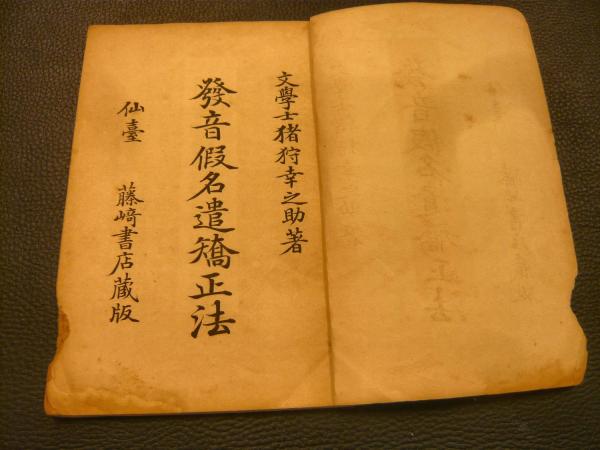 文學士猪狩幸之助著
發音假名遣矯正法
仙臺 藤﨑書店蔵版